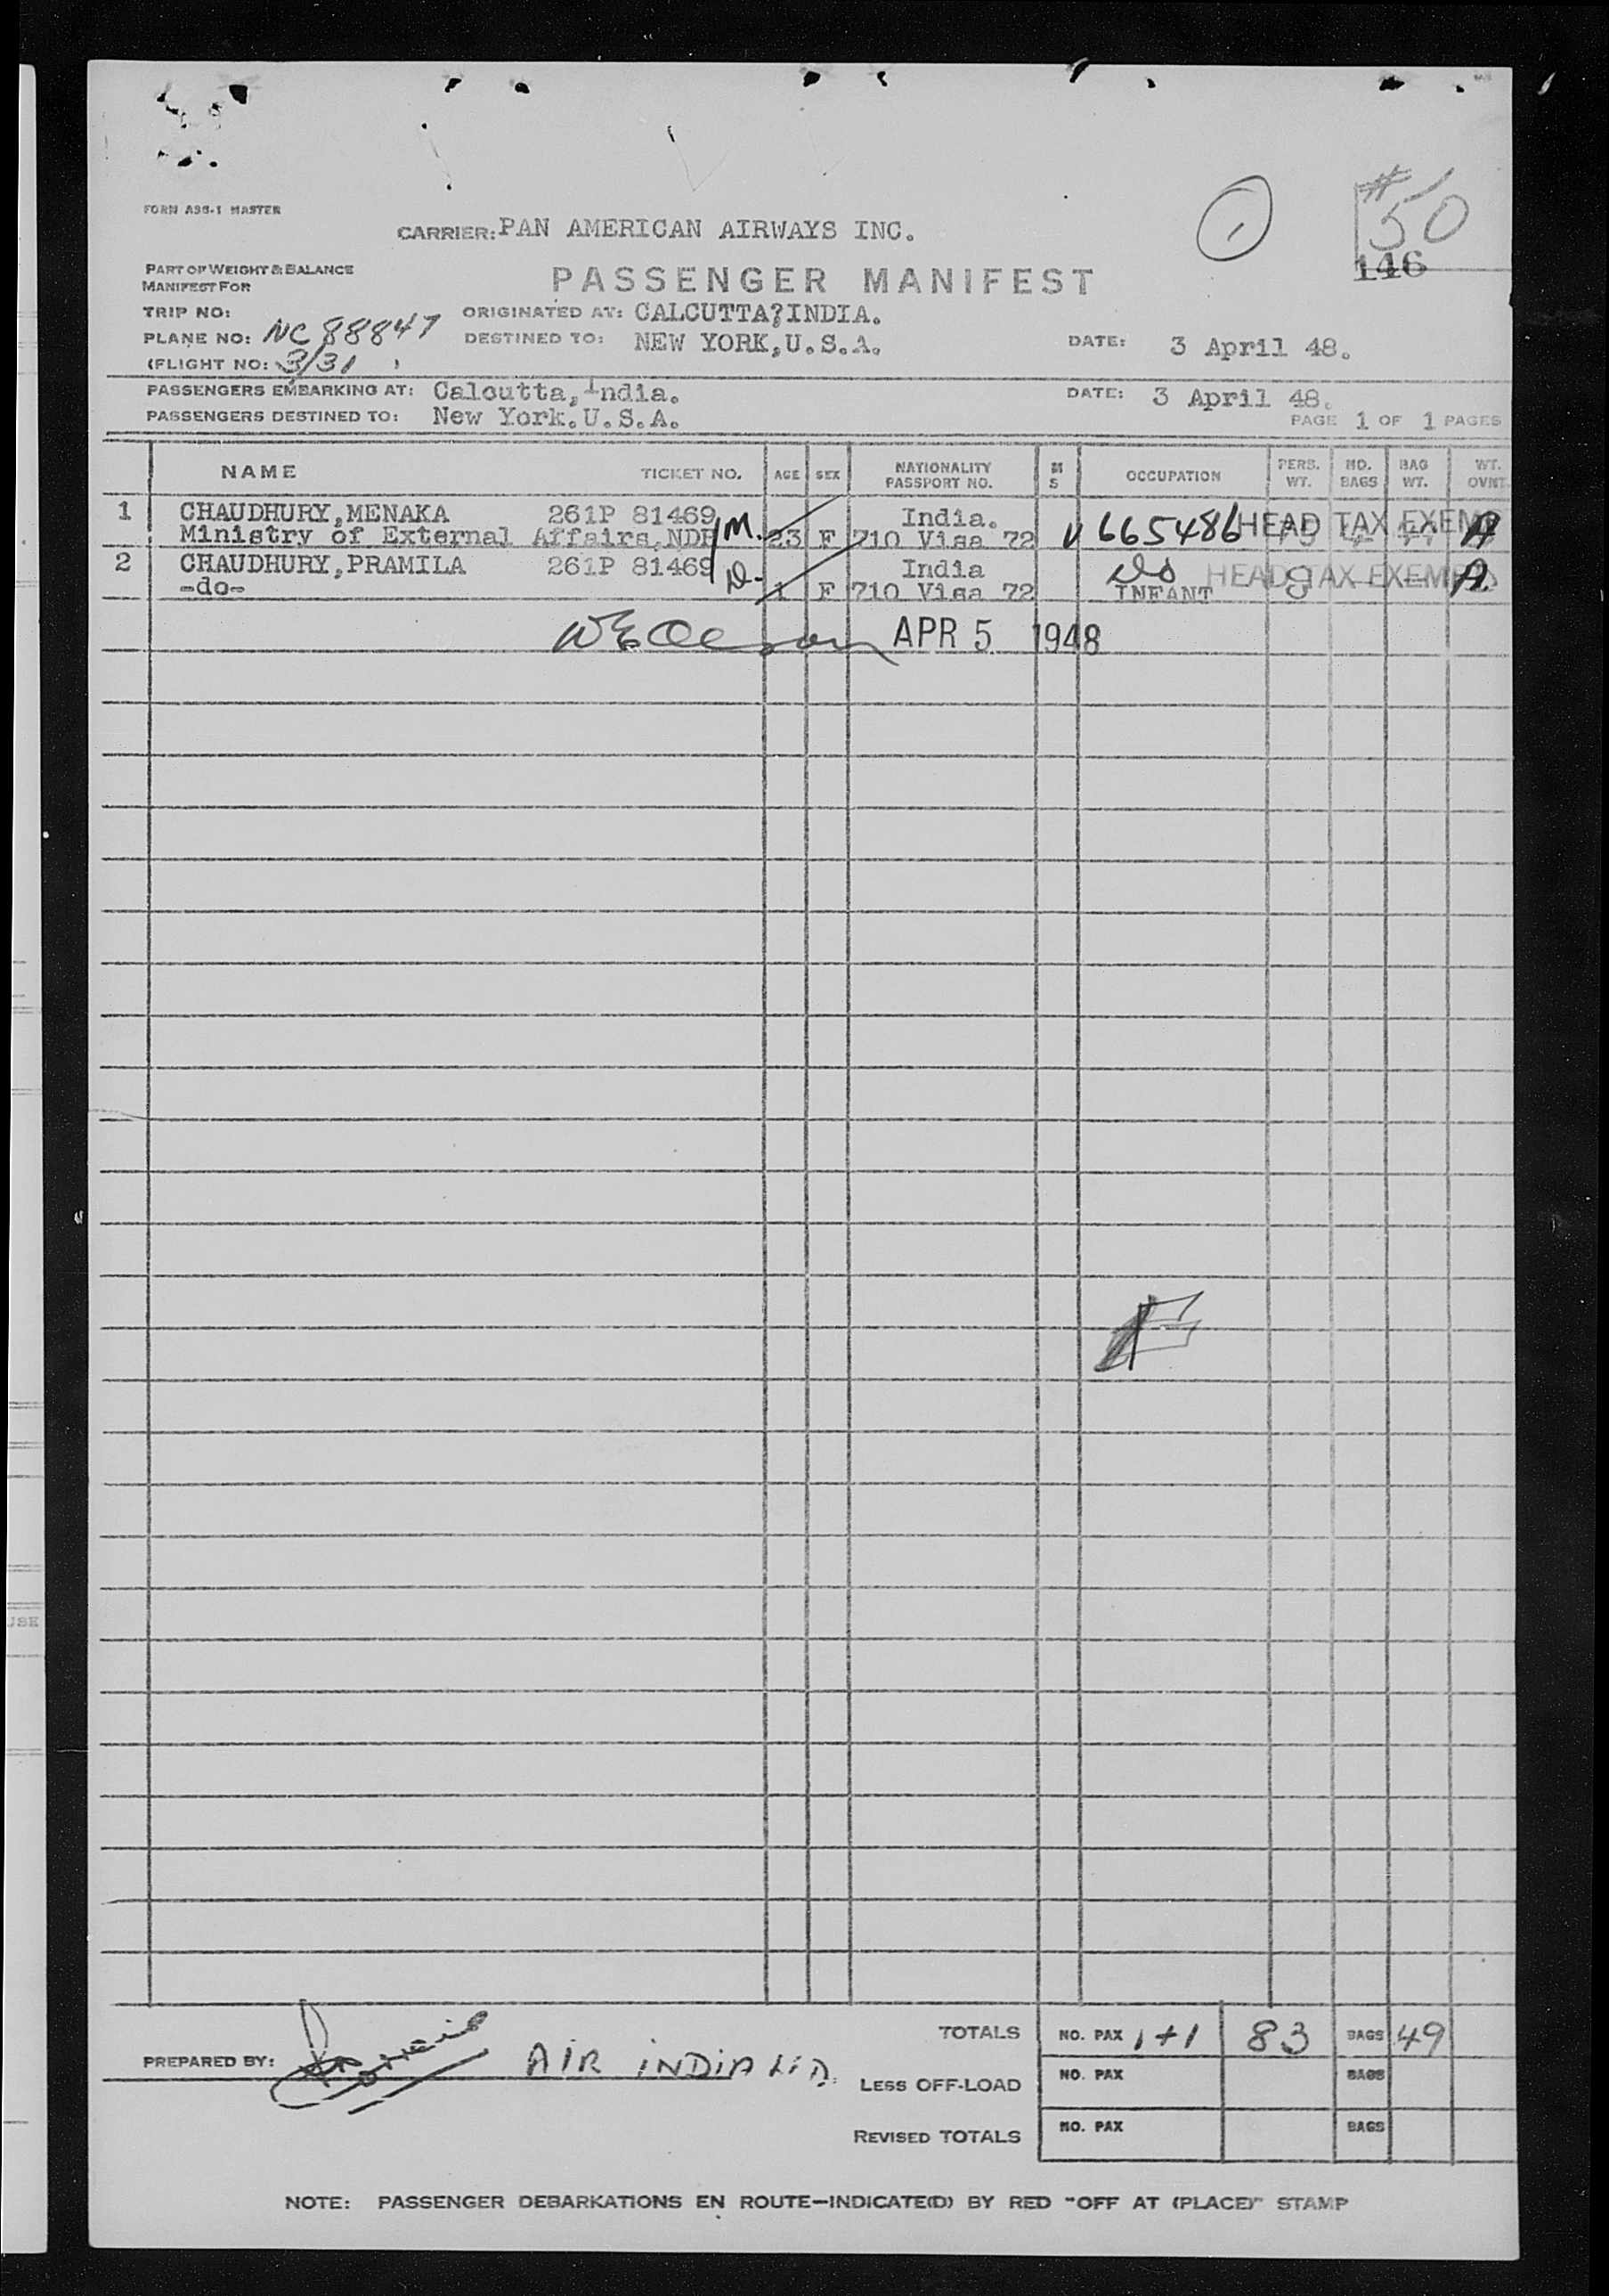 #50
1
146
FORM ASS-1 MASTER
CARRIER: PAN AMERICAN AIRWAYS INC.
PART OF WEIGHT & BALANCE
MANIFEST FOR
PASSENGER MANIFEST
TRIP NO:
ORIGINATED AT: CALCUTTA?INDIA.
PLANE NO: NC 88847
DESTINED TO: NEW YORK,U.S.A.
DATE: 3 April 48.
(FLIGHT NO: 3/31 )
PASSENGERS EMBARKING AT: Calcutta,India.
DATE: 3 April 48.
PASSENGERS DESTINED TO: New York.U.S.A.
PAGE 1 OF 1 PAGES
NAME TICKET NO. AGE SEX NATIONALITY PASSPORT NO. M S OCCUPATION PERS. WT. NO. BAGS BAG WT. WT. OVNT.
1 CHAUDHURY,MENAKA 261P 81469 M. India. V 665486 HEAD TAX EXEMP A
Ministry of External Affairs,NDH 23 F 710 Visa 72
2 CHAUDHURY,PRAMILA 261P 81469 D. India Do HEAD TAX EXEMP A
-do- 1 F 710 Visa 72 INFANT 8
APR 5 1948
TOTALS NO. PAX 1+1 83 BAGS 49
PREPARED BY: AIR INDIA LTD.
LESS OFF-LOAD NO. PAX BAGS
REVISED TOTALS NO. PAX BAGS
NOTE: PASSENGER DEBARKATIONS EN ROUTE—INDICATE(D) BY RED "OFF AT (PLACE)" STAMP